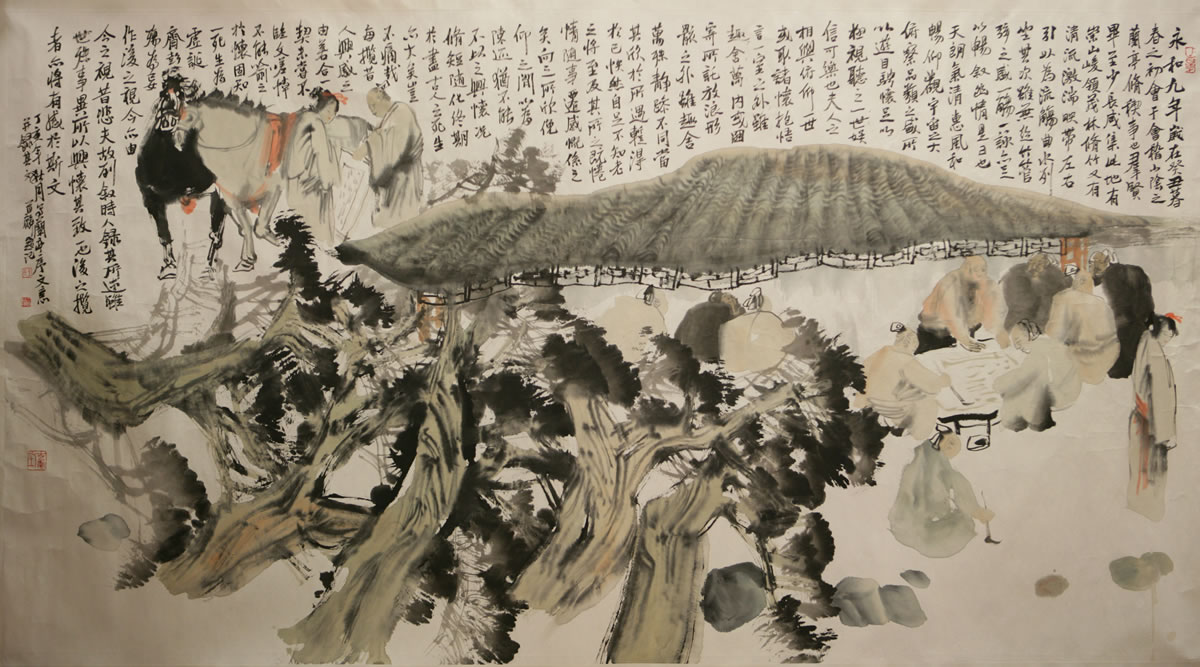 永和九年歲在癸丑暮
春之初會于會稽山陰之
蘭亭脩稧事也羣賢
畢至少長咸集此地有
崇山峻領茂林脩竹又有
清流激湍映帶左右
引以為流觴曲水列
坐其次雖無絲竹管
弦之盛一觴一詠亦足
以暢敘幽情是日也
天朗氣清惠風和
暢仰觀宇宙大
俯察品類之盛所
以遊目騁懷足以
極視聽之一世娛
信可樂也夫人之
相與俯仰一世
或取諸懷抱悟
言一室之外雖
趣舍萬內或因
寄所託放浪形
骸之外雖趣舍
萬殊靜躁不同當
其欣於所遇暫得
於己快然自足不知老
之將至及其所之既惓
情隨事遷感慨係之
矣向之所欣俛
仰之間以為
陳迹猶不能
不以之興懷況
脩短隨化終期
於盡古人云死生
亦大矣豈
不痛哉
每攬昔
人興感之
由若合一
契未嘗不
臨文嗟悼
不能喻之
於懷固知
一死生為
虛誕
齊彭
殤為妄
作後之視今亦由
今之視昔悲夫故列敘時人錄其所述雖
世殊事異所以興懷其致一也後之攬
者亦將有感於斯文